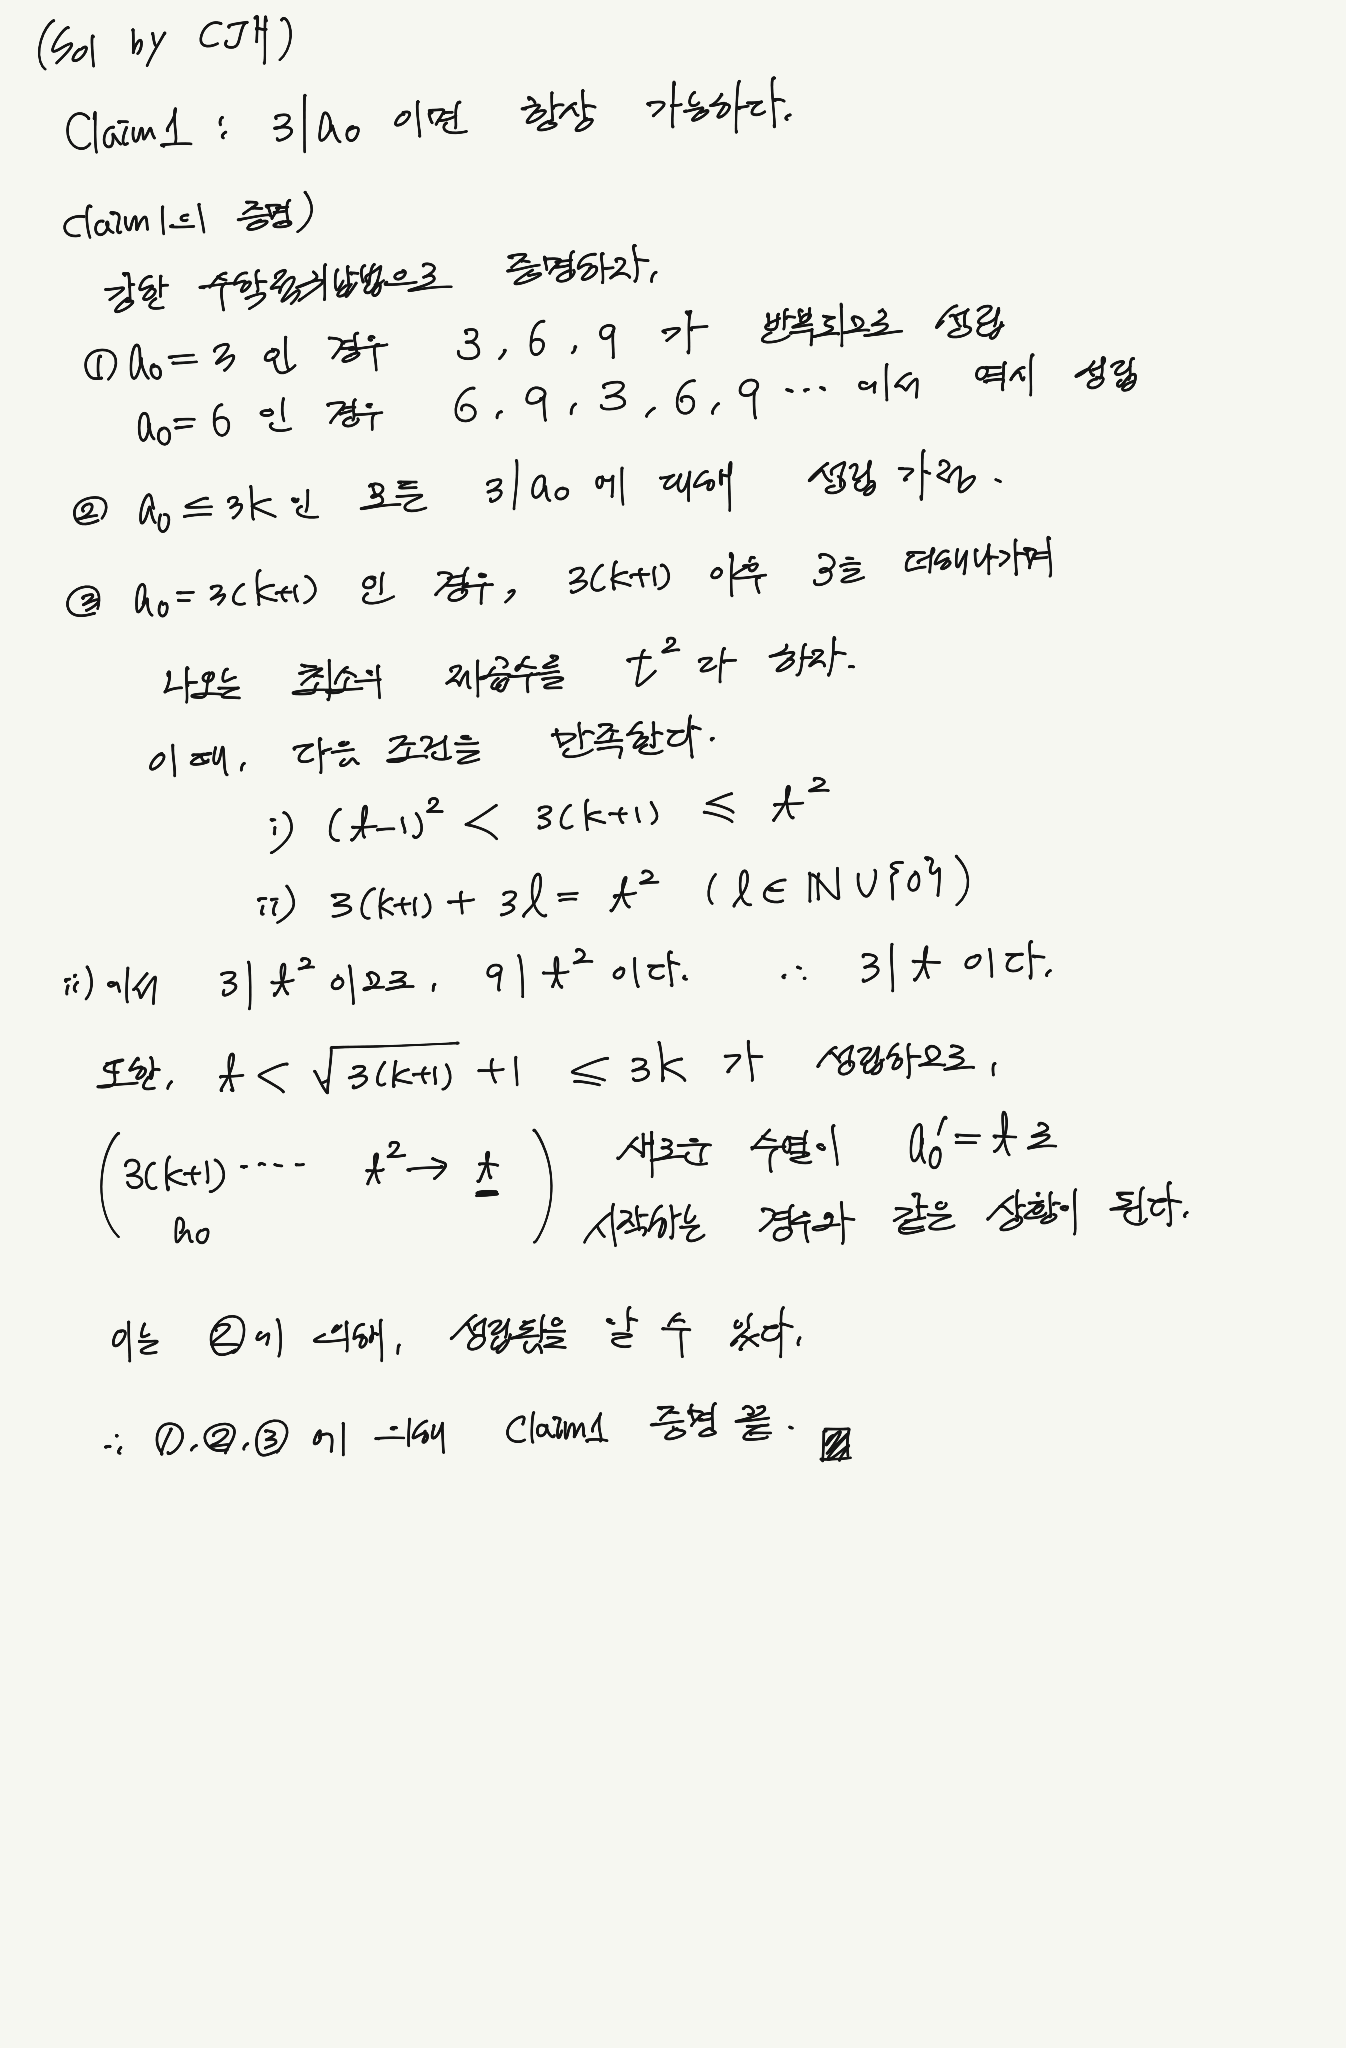 (Sol by CJH)
Claim1 : 3|a₀ 이면 항상 가능하다.
claim1의 증명)
강한 수학적귀납법으로 증명하자.
① a₀ = 3 인 경우 3, 6, 9 가 반복되므로 성립
a₀ = 6 인 경우 6, 9, 3, 6, 9 … 에서 역시 성립
② a₀ ≤ 3k 인 모든 3|a₀ 에 대해 성립 가정.
③ a₀ = 3(k+1) 인 경우, 3(k+1) 이후 3을 더해나가며
나오는 최소의 제곱수를 t² 라 하자.
이 때, 다음 조건을 만족한다.
i) (t-1)² < 3(k+1) ≤ t²
ii) 3(k+1) + 3l = t² (l ∈ ℕ ∪ {0})
ii) 에서 3|t² 이므로, 9|t² 이다. ∴ 3|t 이다.
또한, t < √3(k+1) +1 ≤ 3k 가 성립하므로,
( 3(k+1) ···· t² → t ) 새로운 수열이 a₀′ = t 로
a₀ 시작하는 경우와 같은 상황이 된다.
이는 ②에 의해, 성립함을 알 수 있다.
∴ ①, ②, ③ 에 의해 Claim1 증명 끝.